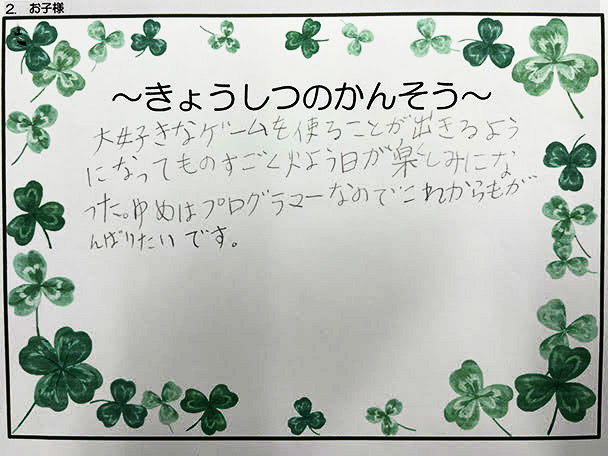 2. お子様
～きょうしつのかんそう～
大好きなゲームを使ることが出きるよう
になってものすごく火よう日が楽しみにな
った。ゆめはプログラマーなのでこれからもが
んばりたいです。